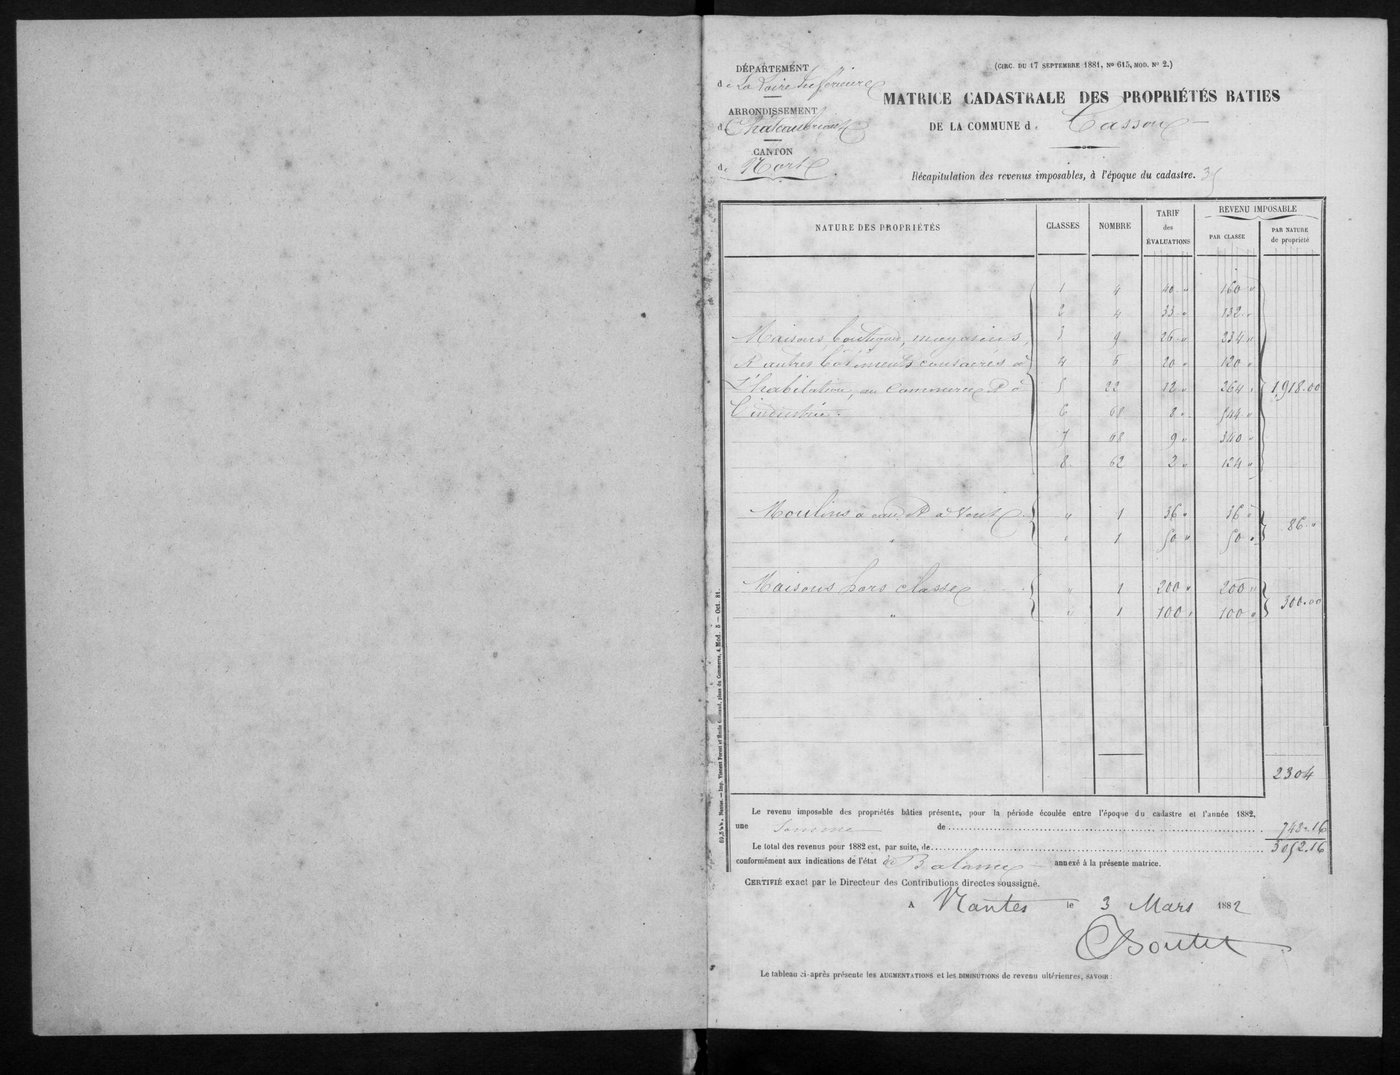 (CIRC. DU 17 SEPTEMBRE 1881, No 615, MOD. No 2.)
DÉPARTEMENT
de La Loire Inférieure
ARRONDISSEMENT
d Châteaubriant
CANTON
de Nort
MATRICE CADASTRALE DES PROPRIÉTÉS BATIES
DE LA COMMUNE de Casson
Récapitulation des revenus imposables, à l'époque du cadastre.
NATURE DES PROPRIÉTÉS CLASSES NOMBRE TARIF des ÉVALUATIONS REVENU IMPOSABLE
PAR CLASSE PAR NATURE de propriété
1 4 40 " 160 "
2 4 33 " 132 "
Maisons, magasins, 3 9 26 " 234 "
et autres bâtiments consacrés à 4 6 20 " 120 "
l'habitation, au commerce et à 5 22 12 " 264 " 1,918.00
l'industrie. 6 68 8 " 544 "
7 " 340 "
8 62 2 " 124 "
Moulins à eau et à vent " 1 36 " 36 "
86 "
" " 1 50 " 50 "
Maisons hors classe " 1 200 " 200 "
300.00
" " 1 100 " 100 "
2304
Le revenu imposable des propriétés bâties présente, pour la période écoulée entre l'époque du cadastre et l'année 1882,
une somme de 748.16
Le total des revenus pour 1882 est, par suite, de 3052.16
conformément aux indications de l'état de Balance annexé à la présente matrice.
CERTIFIÉ exact par le Directeur des Contributions directes soussigné.
A Nantes le 3 Mars 1882
Le tableau ci-après présente les AUGMENTATIONS et les DIMINUTIONS de revenu ultérieures, SAVOIR :